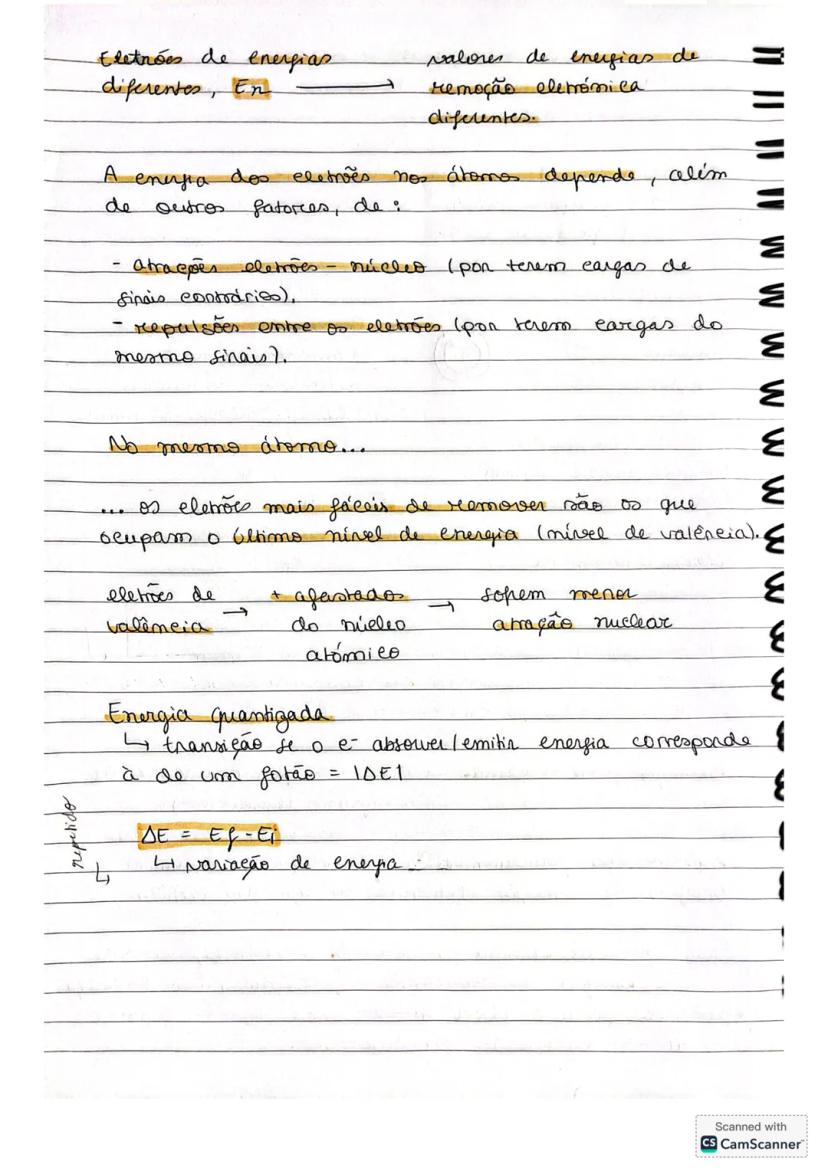 Eletrões de energias
diferentes, En ⟶
valores de energias de
remoção eletrónica
diferentes.
A energia dos eletrões nos átomos depende, além
de outros fatores, de:
- atracções eletrões - núcleo (por terem cargas de
sinais contrários),
- repulsões entre os eletrões (por terem cargas do
mesmo sinais).
No mesmo átomo...
... os eletrões mais fáceis de remover são os que
ocupam o último nível de energia (nível de valência).
eletrões de
valência →
+ afastados
do núcleo
atómico →
sofrem menor
atração nuclear
Energia quantizada
↳ transição se o e- absorver/emitir energia corresponde
à de um fotão = |ΔE|
repetido ↳
ΔE = Ef - Ei
↳ variação de energia
Scanned with
CS CamScanner